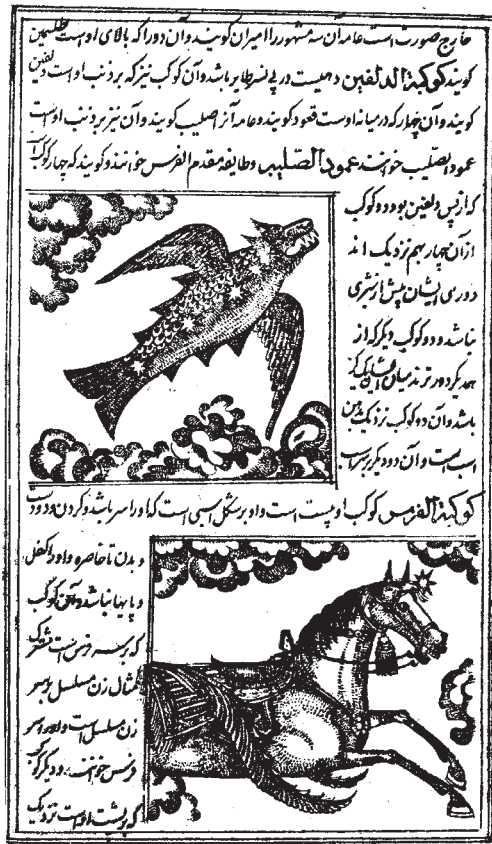 خارج صورت است عامه آن سه مشهور را امیران کویند و آن دو را که بالای او است ظلیمین
کویند کوکبة الدلفین ده است در پی نسر طایر باشد و آن کوکب نیز که بر ذنب او است
کویند و آن چهار که در میانه او است قعود کویند و عامه آنرا صلیب کویند و آن نیز بر ذنب او است
عمود الصلیب خوانند عمود الصلیب و طایفه مقدم الفرس خوانند و کویند که چهار کوکب
که از پس دلفین بود دو کوکب
از آن چهار بهم نزدیک اند
دوری ایشان بیش از شبری
نباشد و دو کوکب دیگر که از
همدیگر دور ترند میان
باشد و آن دو کوکب نزدیک
اسب است و آن دو دیگر بر سر اسب
کوکبة الفرس کوکب او بیست است و او بر شکل اسبی است که او را سر باشد و گردن و دو دست
و بدن تا خاصره و او را کفل
و پایها نباشد و آن کوکب
که بر سره فرس است مشترک
تمثال زن مسلسل بر سر
زن مسلسل است و او را سر
فرس خوانند و دیگر کوکب
که بر پشت او است نزدیک